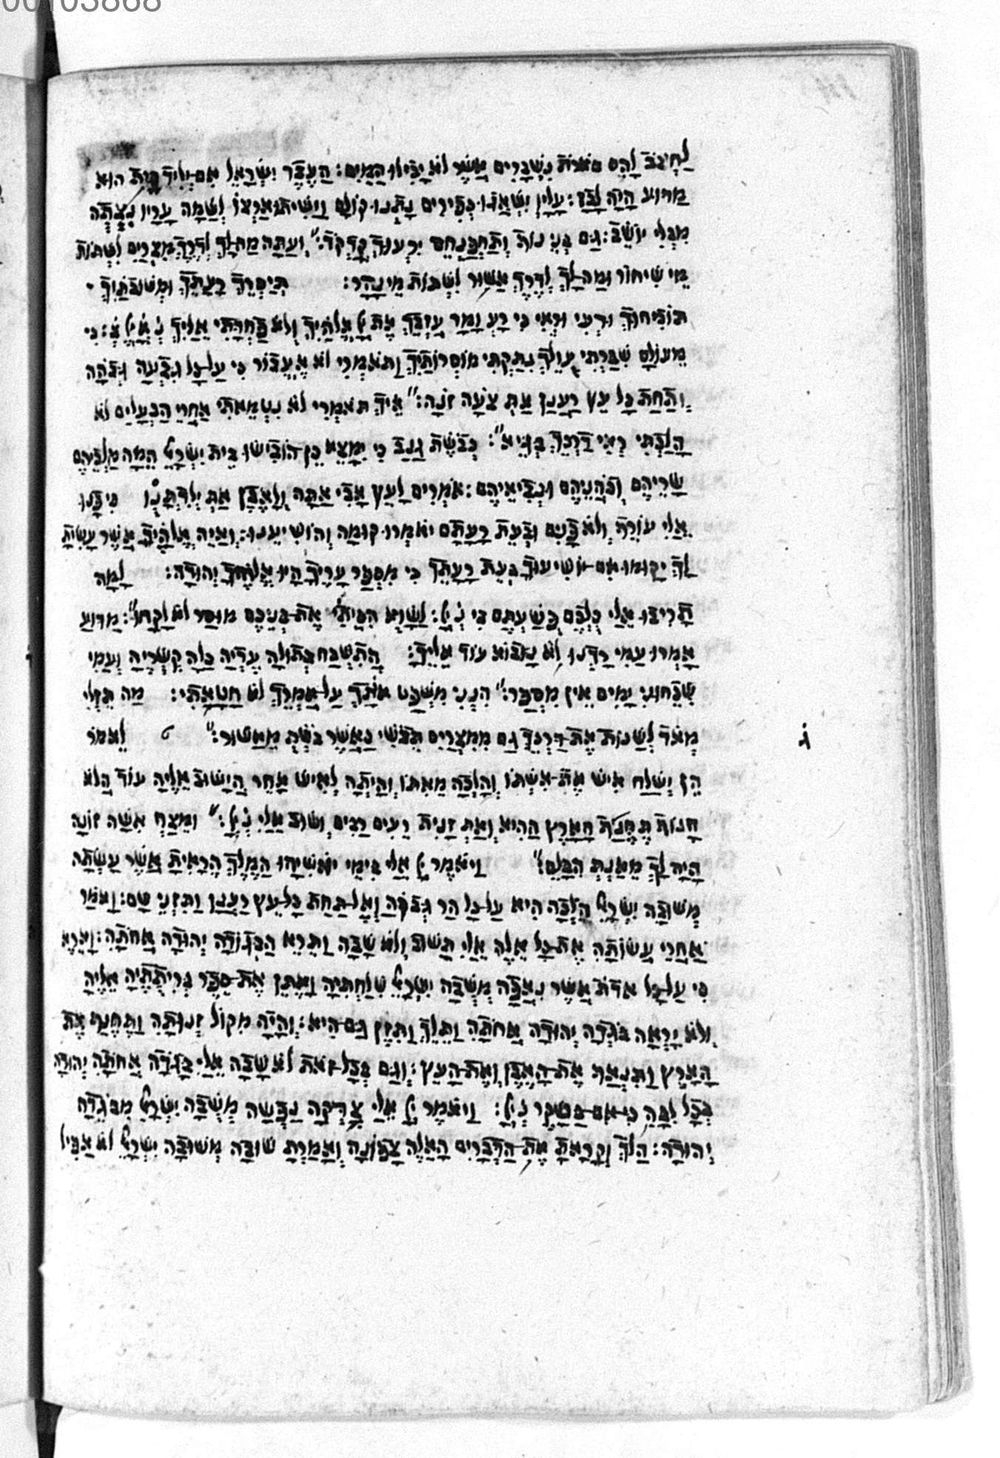 00103868
לַחְצֹב לָהֶם בֹּארֹת נִשְׁבָּרִים אֲשֶׁר לֹא יָכִילוּ הַמָּיִם׃ הַעֶבֶד יִשְׂרָאֵל אִם־יְלִיד בַּיִת הוּא
מַדּוּעַ הָיָה לָבַז׃ עָלָיו יִשְׁאֲגוּ כְפִירִים נָתְנוּ קוֹלָם וַיָּשִׁיתוּ אַרְצוֹ לְשַׁמָּה עָרָיו נִצְּתָה
מִבְּלִי יוֹשֵׁב׃ גַּם בְּנֵי נוֹף וְתַחְפַּנְחֵס יִרְעוּךְ קָדְקֹד׃ וְעַתָּה מַה־לָּךְ לְדֶרֶךְ מִצְרַיִם לִשְׁתּוֹת
מֵי שִׁיחוֹר וּמַה־לָּךְ לְדֶרֶךְ אַשּׁוּר לִשְׁתּוֹת מֵי נָהָר׃ תְּיַסְּרֵךְ רָעָתֵךְ וּמְשׁוּבֹתַיִךְ
תּוֹכִיחוּךְ וּדְעִי וּרְאִי כִּי רַע וָמָר עָזְבֵךְ אֶת יְיָ אֱלֹהָיִךְ וְלֹא פַחְדָּתִי אֵלַיִךְ נְ׳ אֲ׳ יְ׳ צְ׳׃ כִּי
מֵעוֹלָם שָׁבַרְתִּי עֻלֵּךְ נִתַּקְתִּי מוֹסְרוֹתַיִךְ וַתֹּאמְרִי לֹא אֶעֱבוֹר כִּי עַל־כָּל גִּבְעָה גְּבֹהָה
וְתַחַת כָּל עֵץ רַעֲנָן אַתְּ צֹעָה זֹנָה׃ אֵיךְ תֹּאמְרִי לֹא נִטְמֵאתִי אַחֲרֵי הַבְּעָלִים לֹא
הָלַכְתִּי רְאִי דַרְכֵּךְ בַּגַּיְא׃ כְּבֹשֶׁת גַּנָּב כִּי יִמָּצֵא כֵּן הוֹבִישׁוּ בֵּית יִשְׂרָאֵל הֵמָּה מַלְכֵיהֶם
שָׂרֵיהֶם וְכֹהֲנֵיהֶם וּנְבִיאֵיהֶם׃ אֹמְרִים לָעֵץ אָבִי אַתָּה וְלָאֶבֶן אַתְּ יְלִדְתָּנוּ כִּי פָנוּ
אֵלַי עֹרֶף וְלֹא פָנִים וּבְעֵת רָעָתָם יֹאמְרוּ קוּמָה וְהוֹשִׁיעֵנוּ׃ וְאַיֵּה אֱלֹהֶיךָ אֲשֶׁר עָשִׂיתָ
לָּךְ יָקוּמוּ אִם־יוֹשִׁיעוּךָ בְּעֵת רָעָתֶךָ כִּי מִסְפַּר עָרֶיךָ הָיוּ אֱלֹהֶיךָ יְהוּדָה׃ לָמָּה
תָרִיבוּ אֵלַי כֻּלְּכֶם פְּשַׁעְתֶּם בִּי נְ׳ יְיָ׃ לַשָּׁוְא הִכֵּיתִי אֶת־בְּנֵיכֶם מוּסָר לֹא לָקָחוּ׃ מַדּוּעַ
אָמְרוּ עַמִּי רַדְנוּ לֹא נָבוֹא עוֹד אֵלֶיךָ׃ הֲתִשְׁכַּח בְּתוּלָה עֶדְיָהּ כַּלָּה קִשֻּׁרֶיהָ וְעַמִּי
שְׁכֵחוּנִי יָמִים אֵין מִסְפָּר׃ הִנְנִי נִשְׁפָּט אוֹתָךְ עַל־אָמְרֵךְ לֹא חָטָאתִי׃ מַה תֵּזְלִי
מְאֹד לְשַׁנּוֹת אֶת־דַּרְכֵּךְ גַּם מִמִּצְרַיִם תֵּבֹשִׁי כַּאֲשֶׁר בֹּשְׁתְּ מֵאַשּׁוּר׃ ס לֵאמֹר
ג
הֵן יְשַׁלַּח אִישׁ אֶת־אִשְׁתּוֹ וְהָלְכָה מֵאִתּוֹ וְהָיְתָה לְאִישׁ אַחֵר הֲיָשׁוּב אֵלֶיהָ עוֹד הֲלֹא
חָנוֹף תֶּחֱנַף הָאָרֶץ הַהִיא וְאַתְּ זָנִית רֵעִים רַבִּים וְשׁוֹב אֵלַי נְ׳ יְיָ׃ וּמֵצַח אִשָּׁה זוֹנָה
הָיָה לָךְ מֵאַנְתְּ הִכָּלֵם׃ וַיֹּאמֶר יְיָ אֵלַי בִּימֵי יֹאשִׁיָּהוּ הַמֶּלֶךְ הֲרָאִיתָ אֲשֶׁר עָשְׂתָה
מְשׁוּבָה יִשְׂרָאֵל הֹלְכָה הִיא עַל־כָּל הַר גָּבֹהַּ וְאֶל־תַּחַת כָּל־עֵץ רַעֲנָן וַתִּזְנִי שָׁם׃ וָאֹמַר
אַחֲרֵי עֲשׂוֹתָהּ אֶת־כָּל אֵלֶּה אֵלַי תָּשׁוּב וְלֹא שָׁבָה וַתֵּרֶא בָּגוֹדָה יְהוּדָה אֲחֹתָהּ׃ וָאֵרֶא
כִּי עַל־כָּל אֹדֹת אֲשֶׁר נִאֲפָה מְשֻׁבָה יִשְׂרָאֵל שִׁלַּחְתִּיהָ וָאֶתֵּן אֶת־סֵפֶר כְּרִיתֻתֶיהָ אֵלֶיהָ
וְלֹא יָרְאָה בֹּגֵדָה יְהוּדָה אֲחֹתָהּ וַתֵּלֶךְ וַתִּזֶן גַּם־הִיא׃ וְהָיָה מִקּוֹל זְנוּתָהּ וַתֶּחֱנַף אֶת
הָאָרֶץ וַתִּנְאַף אֶת־הָאֶבֶן וְאֶת־הָעֵץ׃ וְגַם בְּכָל־זֹאת לֹא שָׁבָה אֵלַי בָּגוֹדָה אֲחֹתָהּ יְהוּדָה
בְּכָל לִבָּהּ כִּי־אִם־בְּשֶׁקֶר נְ׳ יְיָ׃ וַיֹּאמֶר יְיָ אֵלַי צִדְּקָה נַפְשָׁהּ מְשֻׁבָה יִשְׂרָאֵל מִבֹּגֵדָה
יְהוּדָה׃ הָלֹךְ וְקָרָאתָ אֶת־הַדְּבָרִים הָאֵלֶּה צָפוֹנָה וְאָמַרְתָּ שׁוּבָה מְשׁוּבָה יִשְׂרָאֵל לֹא אַפִּיל